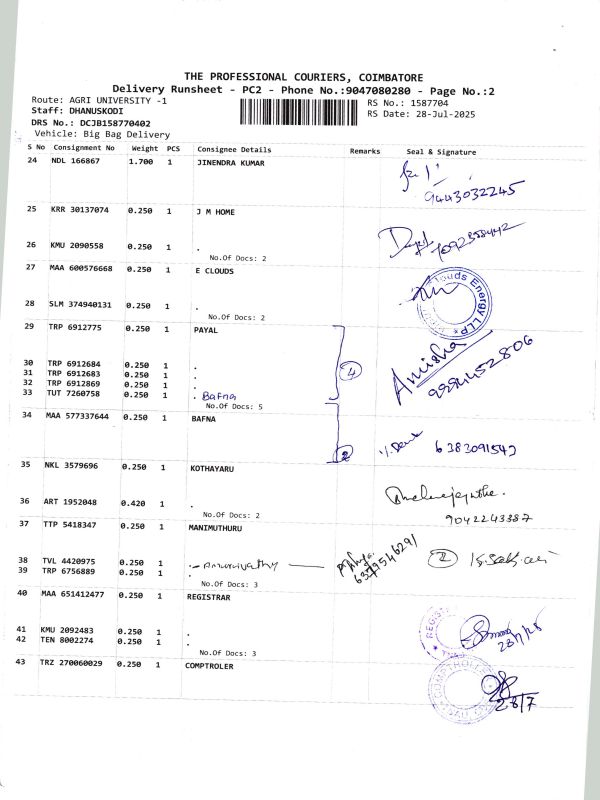 THE PROFESSIONAL COURIERS, COIMBATORE
Delivery Runsheet - PC2 - Phone No.:9047080280 - Page No.:2
Route: AGRI UNIVERSITY -1
RS No.: 1587704
Staff: DHANUSKODI
RS Date: 28-Jul-2025
DRS No.: DCJB158770402
Vehicle: Big Bag Delivery
S No Consignment No Weight PCS Consignee Details Remarks Seal & Signature
24 NDL 166867 1.700 1 JINENDRA KUMAR
9443032245
25 KRR 30137074 0.250 1 J M HOME
26 KMU 2090558 0.250 1 .
No.Of Docs: 2
27 MAA 600576668 0.250 1 E CLOUDS
Clouds Energy LLP
28 SLM 374940131 0.250 1 .
No.Of Docs: 2
29 TRP 6912775 0.250 1 PAYAL
Amisha
9994452806
30 TRP 6912684 0.250 1 .
31 TRP 6912683 0.250 1 .
32 TRP 6912869 0.250 1 .
4
33 TUT 7260758 0.250 1 . Bafna
No.Of Docs: 5
34 MAA 577337644 0.250 1 BAFNA
2
6383091542
35 NKL 3579696 0.250 1 KOTHAYARU
36 ART 1952048 0.420 1 .
No.Of Docs: 2
9042243387
37 TTP 5418347 0.250 1 MANIMUTHURU
38 TVL 4420975 0.250 1 .
6379546291
2
39 TRP 6756889 0.250 1 .
No.Of Docs: 3
40 MAA 651412477 0.250 1 REGISTRAR
41 KMU 2092483 0.250 1 .
28/7/25
42 TEN 8002274 0.250 1 .
No.Of Docs: 3
43 TRZ 270060029 0.250 1 COMPTROLER
COMPTROLLER
28/7